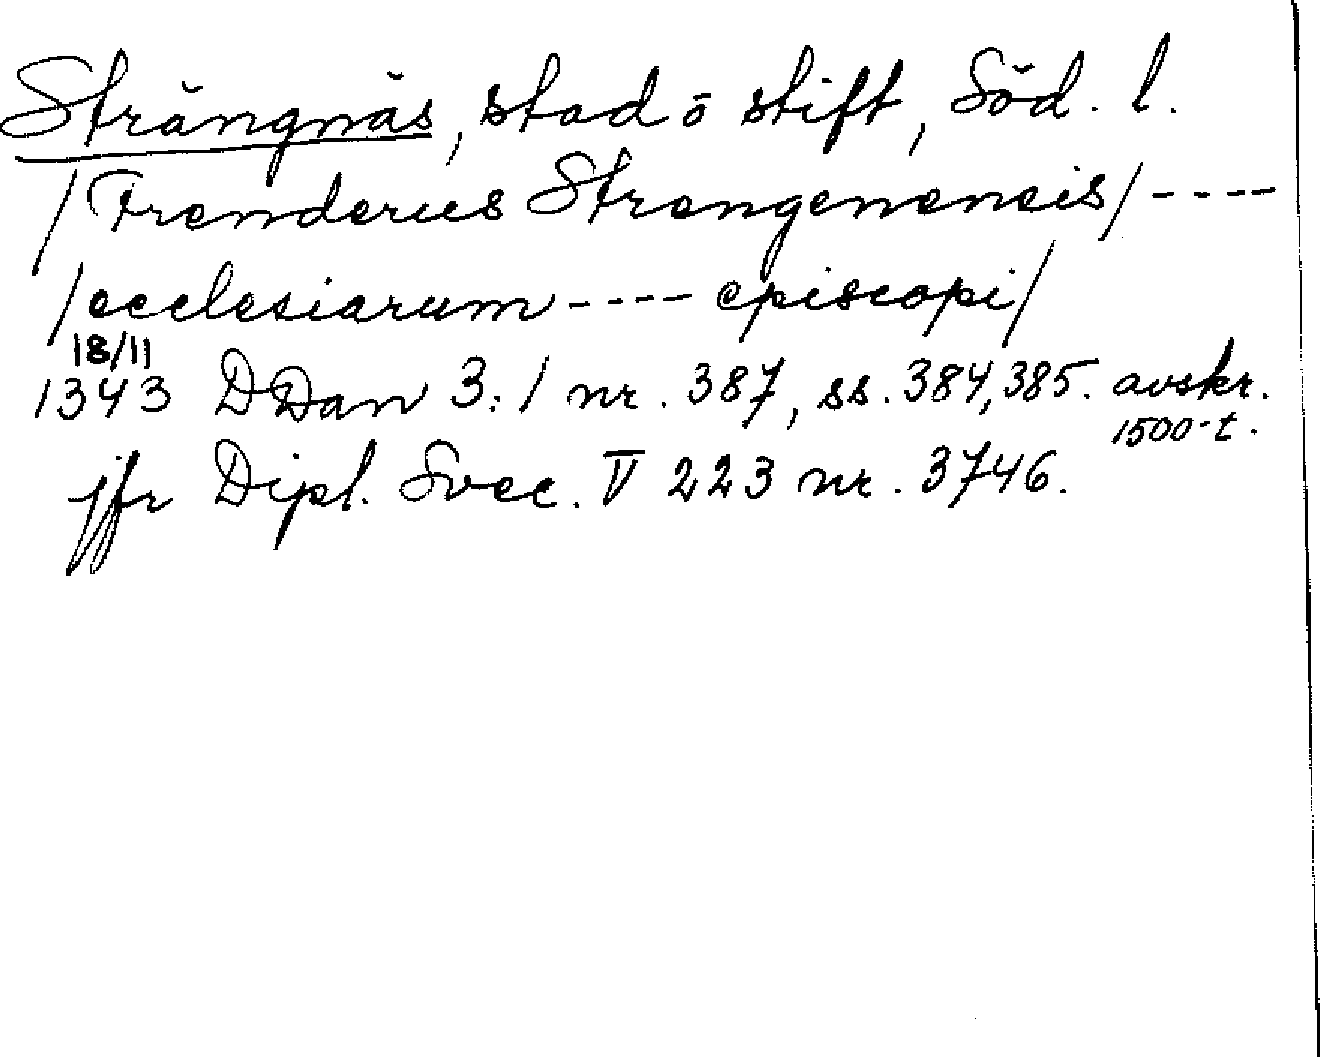 Strängnäs, stad o stift, Söd. l.
/Frenderus Strengenensis/ ----
/ecclesiarum ---- episcopi/
18/11
1343 DDan 3:1 nr. 387, ss. 384, 385. avskr.
1500-t.
jfr Dipl. Svec. V 223 nr. 3746.